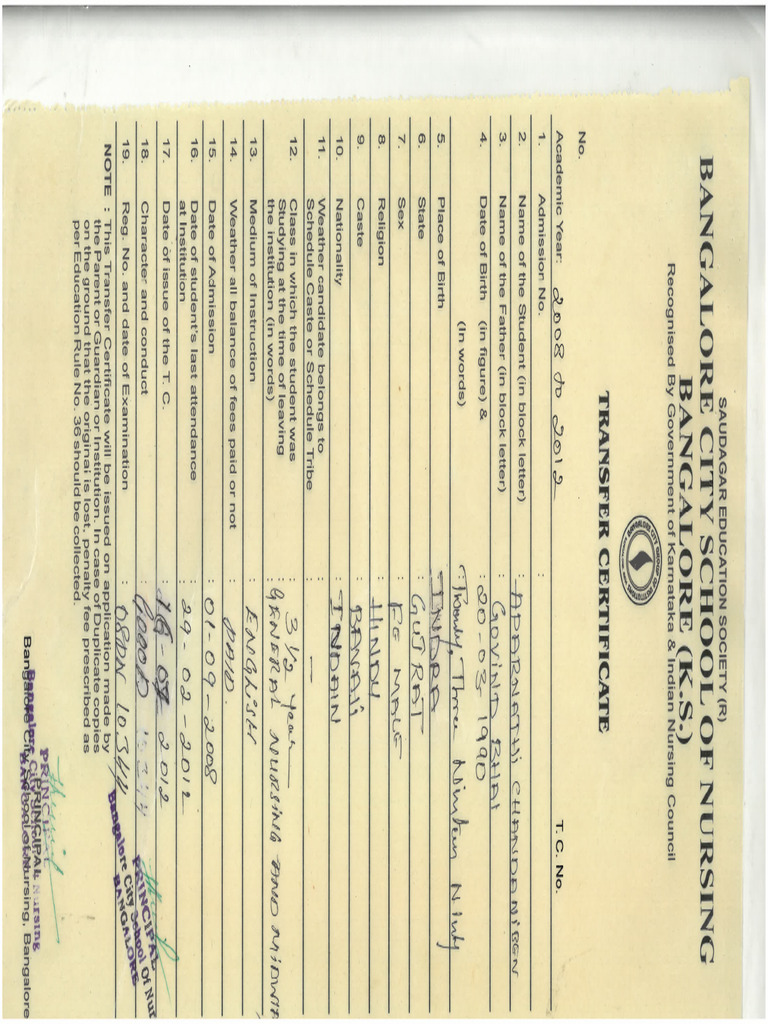 SAUDAGAR EDUCATION SOCIETY (R)
BANGALORE CITY SCHOOL OF NURSING
BANGALORE (K.S.)
Recognised By Government of Karnataka & Indian Nursing Council
TRANSFER CERTIFICATE
No. T. C. No.
Academic Year: 2008 to 2012
1. Admission No. :
2. Name of the Student (in block letter) : APARNATHI CHANDANIBEN
3. Name of the Father (in block letter) : GOVIND BHAI
4. Date of Birth (in figure) & : 20-03-1990
(In words) Twenty Three Ninteen Ninty
5. Place of Birth : INDRA
6. State : GUJRAT
7. Sex : FE MALE
8. Religion : HINDU
9. Caste : BAVAJi
10. Nationality : INDAIN
11. Weather candidate belongs to
Schedule Caste or Schedule Tribe : —
12. Class in which the student was : 3 1/2 year
Studying at the time of leaving : GENERAL NURSING AND MIDWIF
the institution (in words)
13. Medium of Instruction : ENGLISH
14. Weather all balance of fees paid or not : PAID.
15. Date of Admission : 01-09-2008
16. Date of student's last attendance : 29-02-2012
at Institution
17. Date of issue of the T. C. : 2012
18. Character and conduct : GOOD
19. Reg. No. and date of Examination :
PRINCIPAL
Bangalore City School Of Nur
BANGALORE
NOTE : This Transfer Certificate will be issued on application made by
the Parent or Guardian or Institution. In case of Duplicate copies
on the ground that the original is lost, penalty fee prescribed as
per Education Rule No. 36 should be collected.
PRINCIPAL
Bangalore City School of Nursing, Bangalore